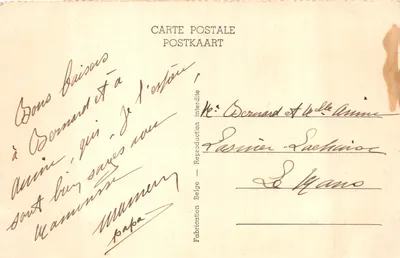 CARTE POSTALE
POSTKAART
Bons baisers
à Bernard et à
Annie, qui, Je l'espère,
sont bien sages
maman
papa
Fabrication Belge - Reproduction interdite
Mr Bernard et Mlle Annie
Le Mans